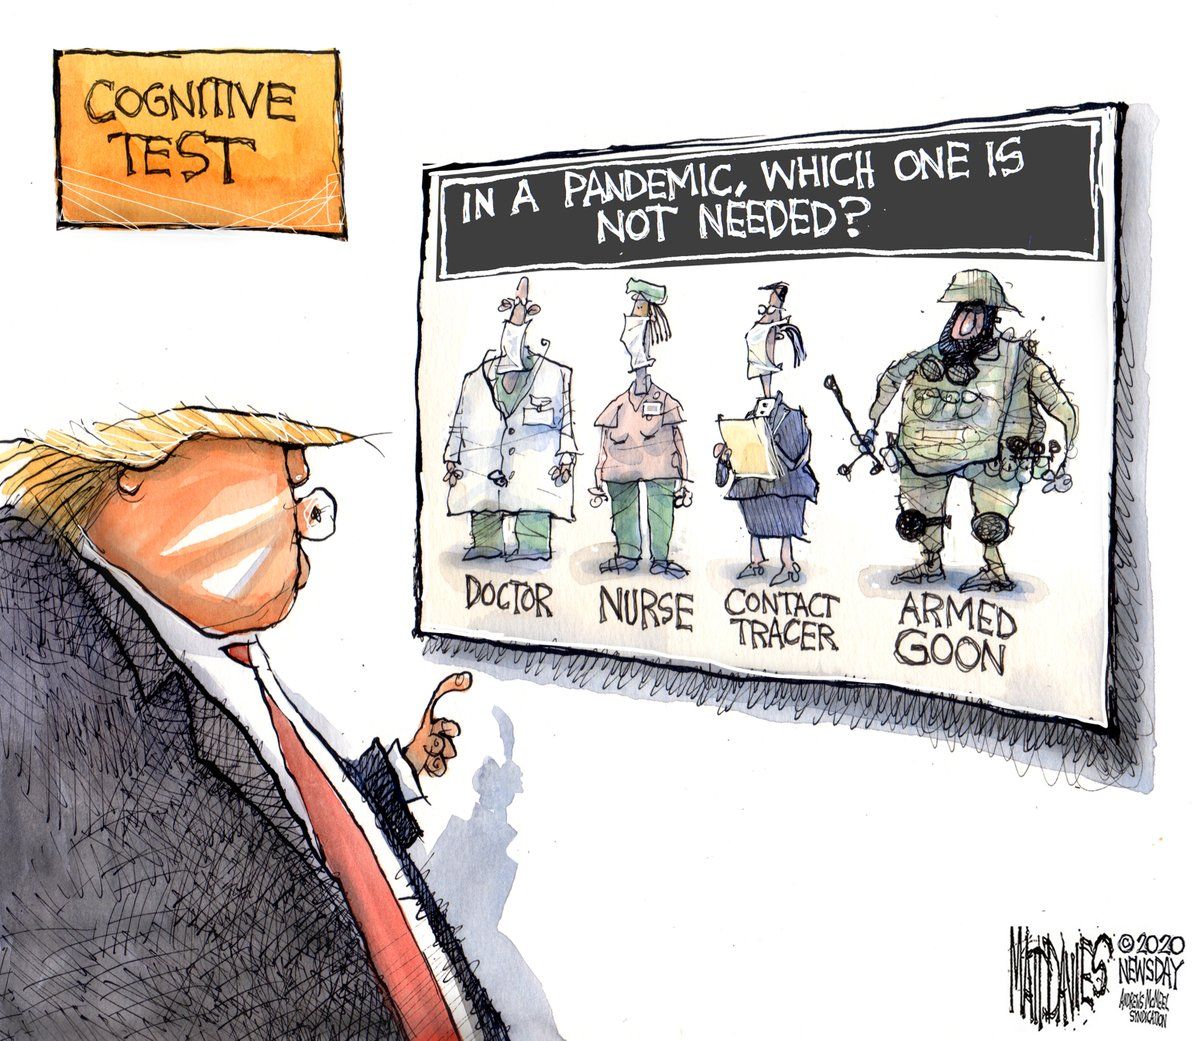 COGNITIVE
TEST
IN A PANDEMIC, WHICH ONE IS
NOT NEEDED?
DOCTOR
NURSE
CONTACT
TRACER
ARMED
GOON
MATT DAVIES
©2020
NEWSDAY
ANDREWS McMEEL
SYNDICATION